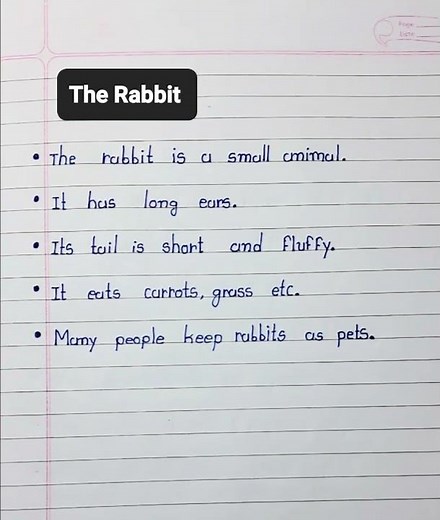 The Rabbit
• The rabbit is a small animal.
• It has long ears.
• Its tail is short and fluffy.
• It eats carrots, grass etc.
• Many people keep rabbits as pets.